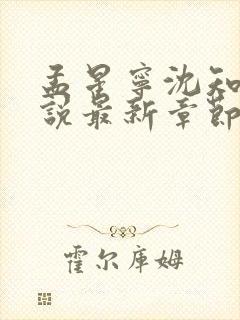 孟星寧沈知
說最新章節
霍尔库姆